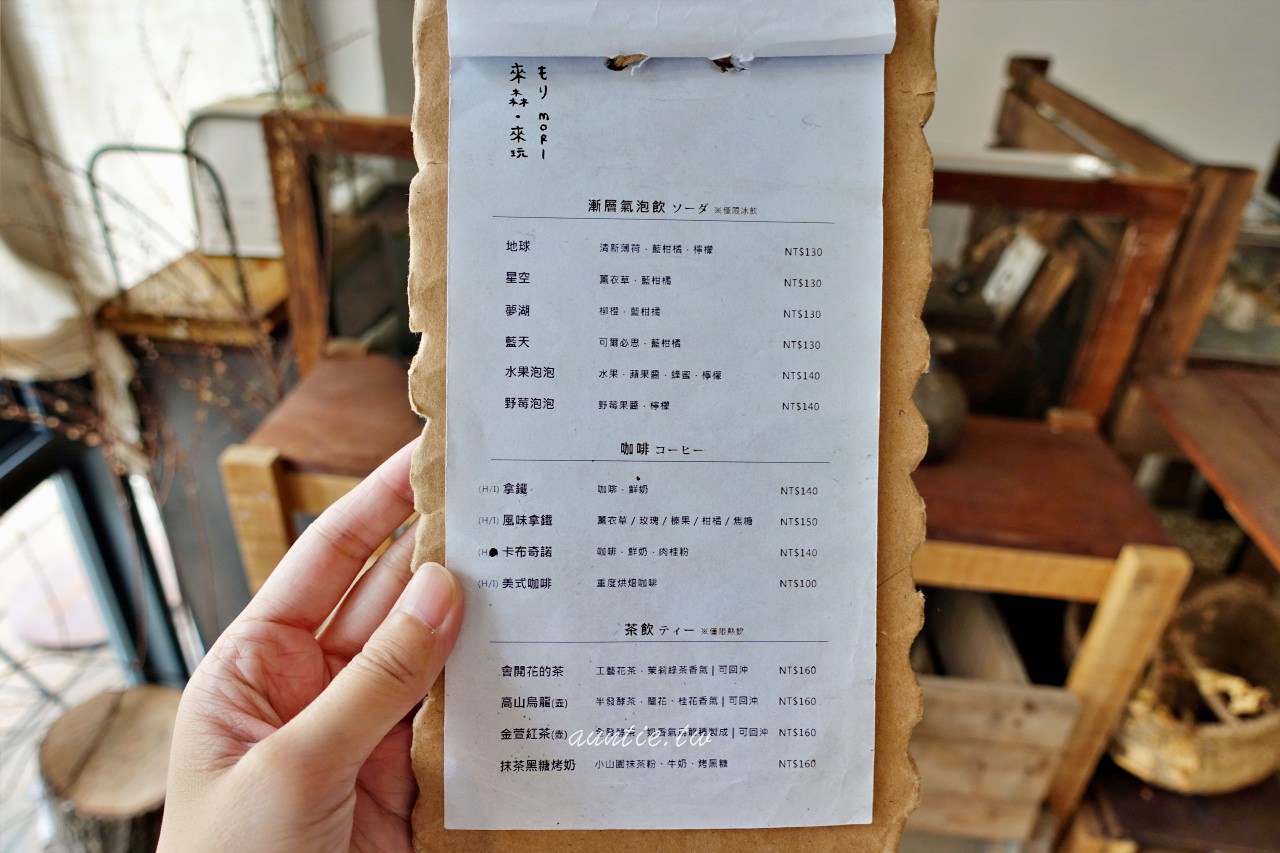 もり MORI
來森・來玩
漸層氣泡飲 ソーダ ※僅限冰飲
地球 清新薄荷．藍柑橘．檸檬 NT$130
星空 薰衣草．藍柑橘 NT$130
夢湖 柳橙．藍柑橘 NT$130
藍天 可爾必思．藍柑橘 NT$130
水果泡泡 水果．蘋果醬．蜂蜜．檸檬 NT$140
野莓泡泡 野莓果醬．檸檬 NT$140
咖啡 コーヒー
(H/I) 拿鐵 咖啡．鮮奶 NT$140
(H/I) 風味拿鐵 薰衣草 / 玫瑰 / 榛果 / 柑橘 / 焦糖 NT$150
(H 卡布奇諾 咖啡．鮮奶．肉桂粉 NT$140
(H/I) 美式咖啡 重度烘焙咖啡 NT$100
茶飲 ティー ※僅限熱飲
會開花的茶 工藝花茶．茉莉綠茶香氣 | 可回沖 NT$160
高山烏龍(壺) 半發酵茶．蘭花、桂花香氣 | 可回沖 NT$160
金萱紅茶(壺) 製成 | 可回沖 NT$160
auntce.tw
抹茶黑糖烤奶 小山園抹茶粉、牛奶、烤黑糖 NT$160